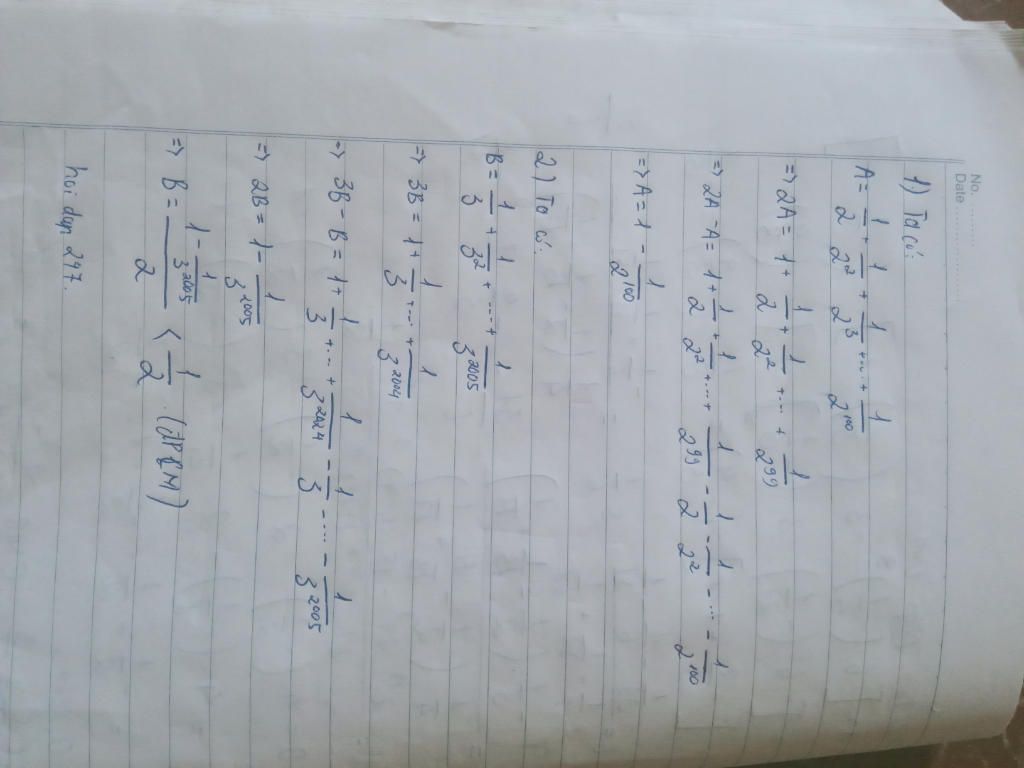 No. ............
Date ..................
1) Ta có:
A = 1/2 + 1/2² + 1/2³ + ... + 1/2¹⁰⁰
=> 2A = 1 + 1/2 + 1/2² + ... + 1/2⁹⁹
=> 2A - A = 1 + 1/2 + 1/2² + ... + 1/2⁹⁹ - 1/2 - 1/2² - ... - 1/2¹⁰⁰
=> A = 1 - 1/2¹⁰⁰
2) Ta có:
B = 1/3 + 1/3² + ... + 1/3²⁰⁰⁵
=> 3B = 1 + 1/3 + ... + 1/3²⁰⁰⁴
=> 3B - B = 1 + 1/3 + ... + 1/3²⁰²⁴ - 1/3 - ... - 1/3²⁰⁰⁵
=> 2B = 1 - 1/3²⁰⁰⁵
=> B = (1 - 1/3²⁰⁰⁵)/2 < 1/2 . (ĐPCM)
hoi dap 247.